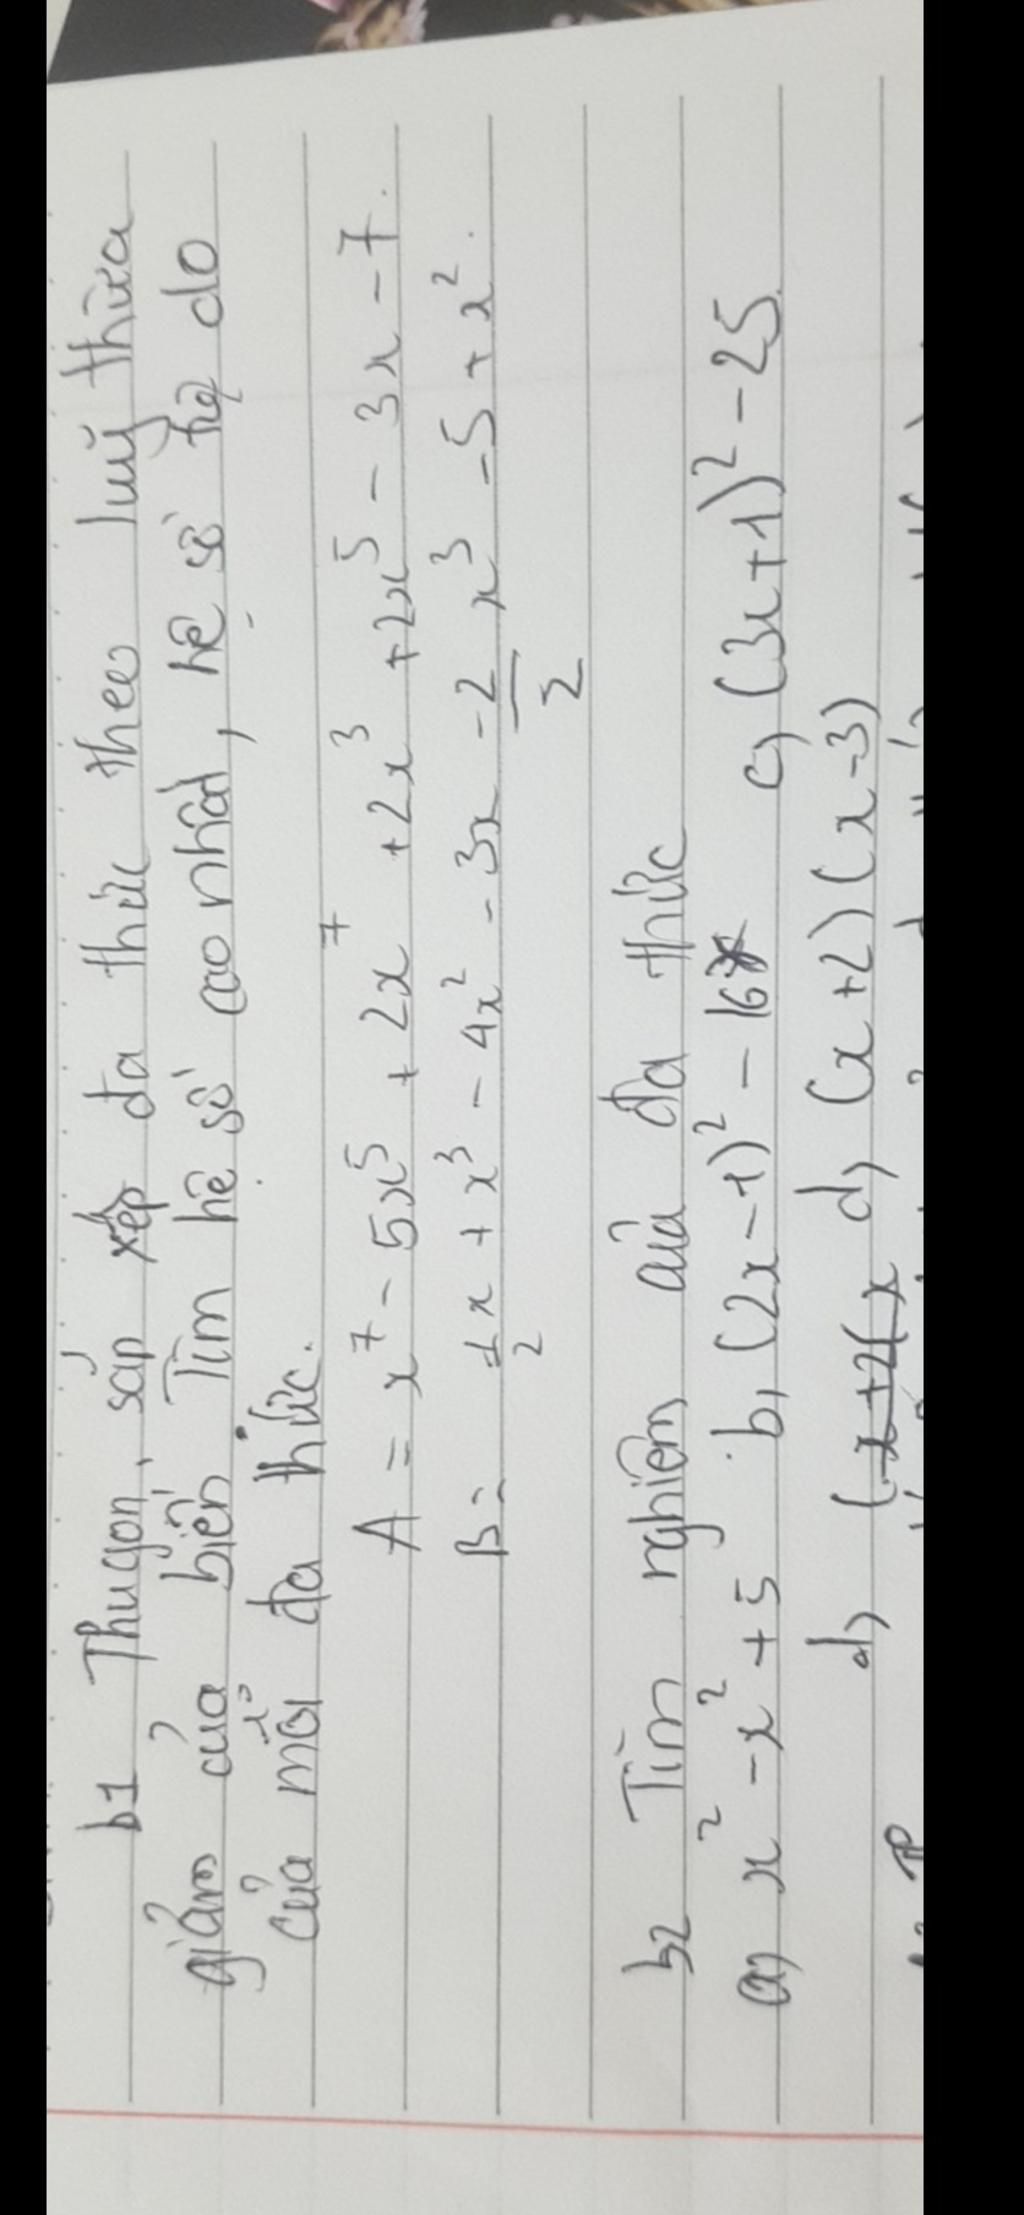 b1 Thu gọn, sắp xếp đa thức theo luỹ thừa
giảm của biến Tìm hệ số cao nhất, hệ số tự do
của mỗi đa thức.
A = x⁷ - 5x⁵ + 2x⁷ + 2x³ + 2x⁵ - 3x - 7.
B = 1/2 x + x³ - 4x² - 3x - 2/2 x³ - 5 + x².
b2 Tìm nghiệm của đa thức
a) x² - x² + 5 b, (2x - 1)² - 16 c, (3x + 1)² - 25.
d, (x + 2)(x d, (x + 2)(x - 3)